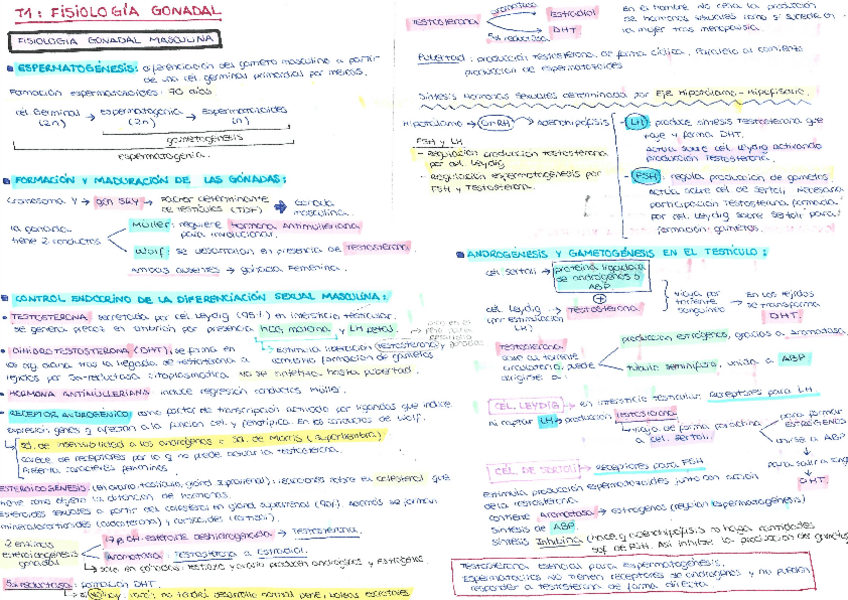 T1: FISIOLOGÍA GONADAL
FISIOLOGIA GONADAL MASCULINA
ESPERMATOGÉNESIS: diferenciación del gameto masculino a partir
de una cel germinal primordial por meiosis.
Formación espermatozoides: 70 días.
cél Germinal → espermatogonia → espermatozoides
(2n) (2n) (n)
gametogénesis
espermatogénia.
FORMACIÓN Y MADURACIÓN DE LAS GÓNADAS:
Cromosoma Y → gen SRY → Factor determinante
de testículos (TDF) → Gónada
masculina.
la gónada
tiene 2 conductos
Müller: requiere Hormona Antimulleriana
para involucionar.
Wolf: se desarrollan en presencia de Testosterona
Ambos ausentes → gónada Femenina.
CONTROL ENDOCRINO DE LA DIFERENCIACIÓN SEXUAL MASCULINA:
TESTOSTERONA secretada por cél Leydig (95%) en intersticio testicular.
se genera precoz en embrión por presencia hCG materna y LH fetal.
DIHIDROTESTOSTERONA (DHT), se forma en
los org diana tras la llegada de testosterona a
tejidos por 5α-reductasa citoplasmática. No se sintetiza hasta pubertad.
HORMONA ANTIMULLERIANA induce regresión conductos Müller.
RECEPTOR ANDROGÉNICO como factor de transcripción activado por ligandos que induce
expresión genes y afectan a la función cel y fenotípica. En los conductos de Wolf.
Sd. de insensibilidad a los andrógenos = Sd. de Morris (superhembra)
carece de receptores por lo q no puede actuar la testosterona.
Presenta caracteres femeninos.
ESTEROIDOGÉNESIS (en ovario, testículo, gland suprarrenal): reacciones sobre el colesterol que
tiene como objeto la obtención de hormonas.
2 enzimas
esteroidogénesis
gónadas
17β OH-esteroide deshidrogenasa → Testosterona.
Aromatasa: Testosterona a Estradiol.
5α reductasa: formación DHT.
Testosterona
aromatasa → Estradiol
5α reductasa → DHT
En el hombre no cesa la producción
de hormonas sexuales como sí sucede en
la mujer tras menopausia.
Pubertad: producción testosterona de forma cíclica. Paralelo al aumento
producción de espermatozoides
Síntesis Hormonas sexuales determinada por Eje Hipotálamo-Hipofisario.
Hipotálamo → GnRH → adenohipófisis
FSH y LH
- Regulación producción testosterona
por cél Leydig
- Regulación espermatogénesis por
FSH y Testosterona.
- LH: produce síntesis testosterona que
viaje y forma DHT.
actúa sobre cél. leydig activando
producción testosterona.
- FSH: regula producción de gametos.
Actúa sobre cél de sertoli. Necesaria
participación testosterona formada
por cel Leydig sobre sertoli para
formación gametos.
ANDROGÉNESIS Y GAMETOGÉNESIS EN EL TESTÍCULO:
cél sertoli → proteína ligadora
de andrógenos
ABP
+
cél Leydig → Testosterona.
(por estimulación
LH)
viaja por
torrente
sanguíneo → En los tejidos
se transforma
DHT.
Testosterona
sale al torrente
circulatorio, puede
dirigirse a:
producción estrógenos, gracias a aromatasa.
túbulo seminífero, unida a ABP
CEL. LEYDIG → en intersticio testicular. Receptores para LH
Al captar LH → producción Testosterona
viaja de forma paracrina
a cél. sertoli.
para formar
ESTRÓGENOS
unirse a ABP
para salir a sangre
DHT.
CÉL DE SERTOLI → receptores para FSH
Estimula producción espermatozoides junto con acción
de la testosterona
Contiene Aromatasa → estrógenos (regulan espermatogénesis)
Síntesis de ABP
Síntesis Inhibina
Testosterona esencial para espermatogénesis.
Espermatocitos no tienen receptores de andrógenos y no pueden
responder a testosterona de forma directa